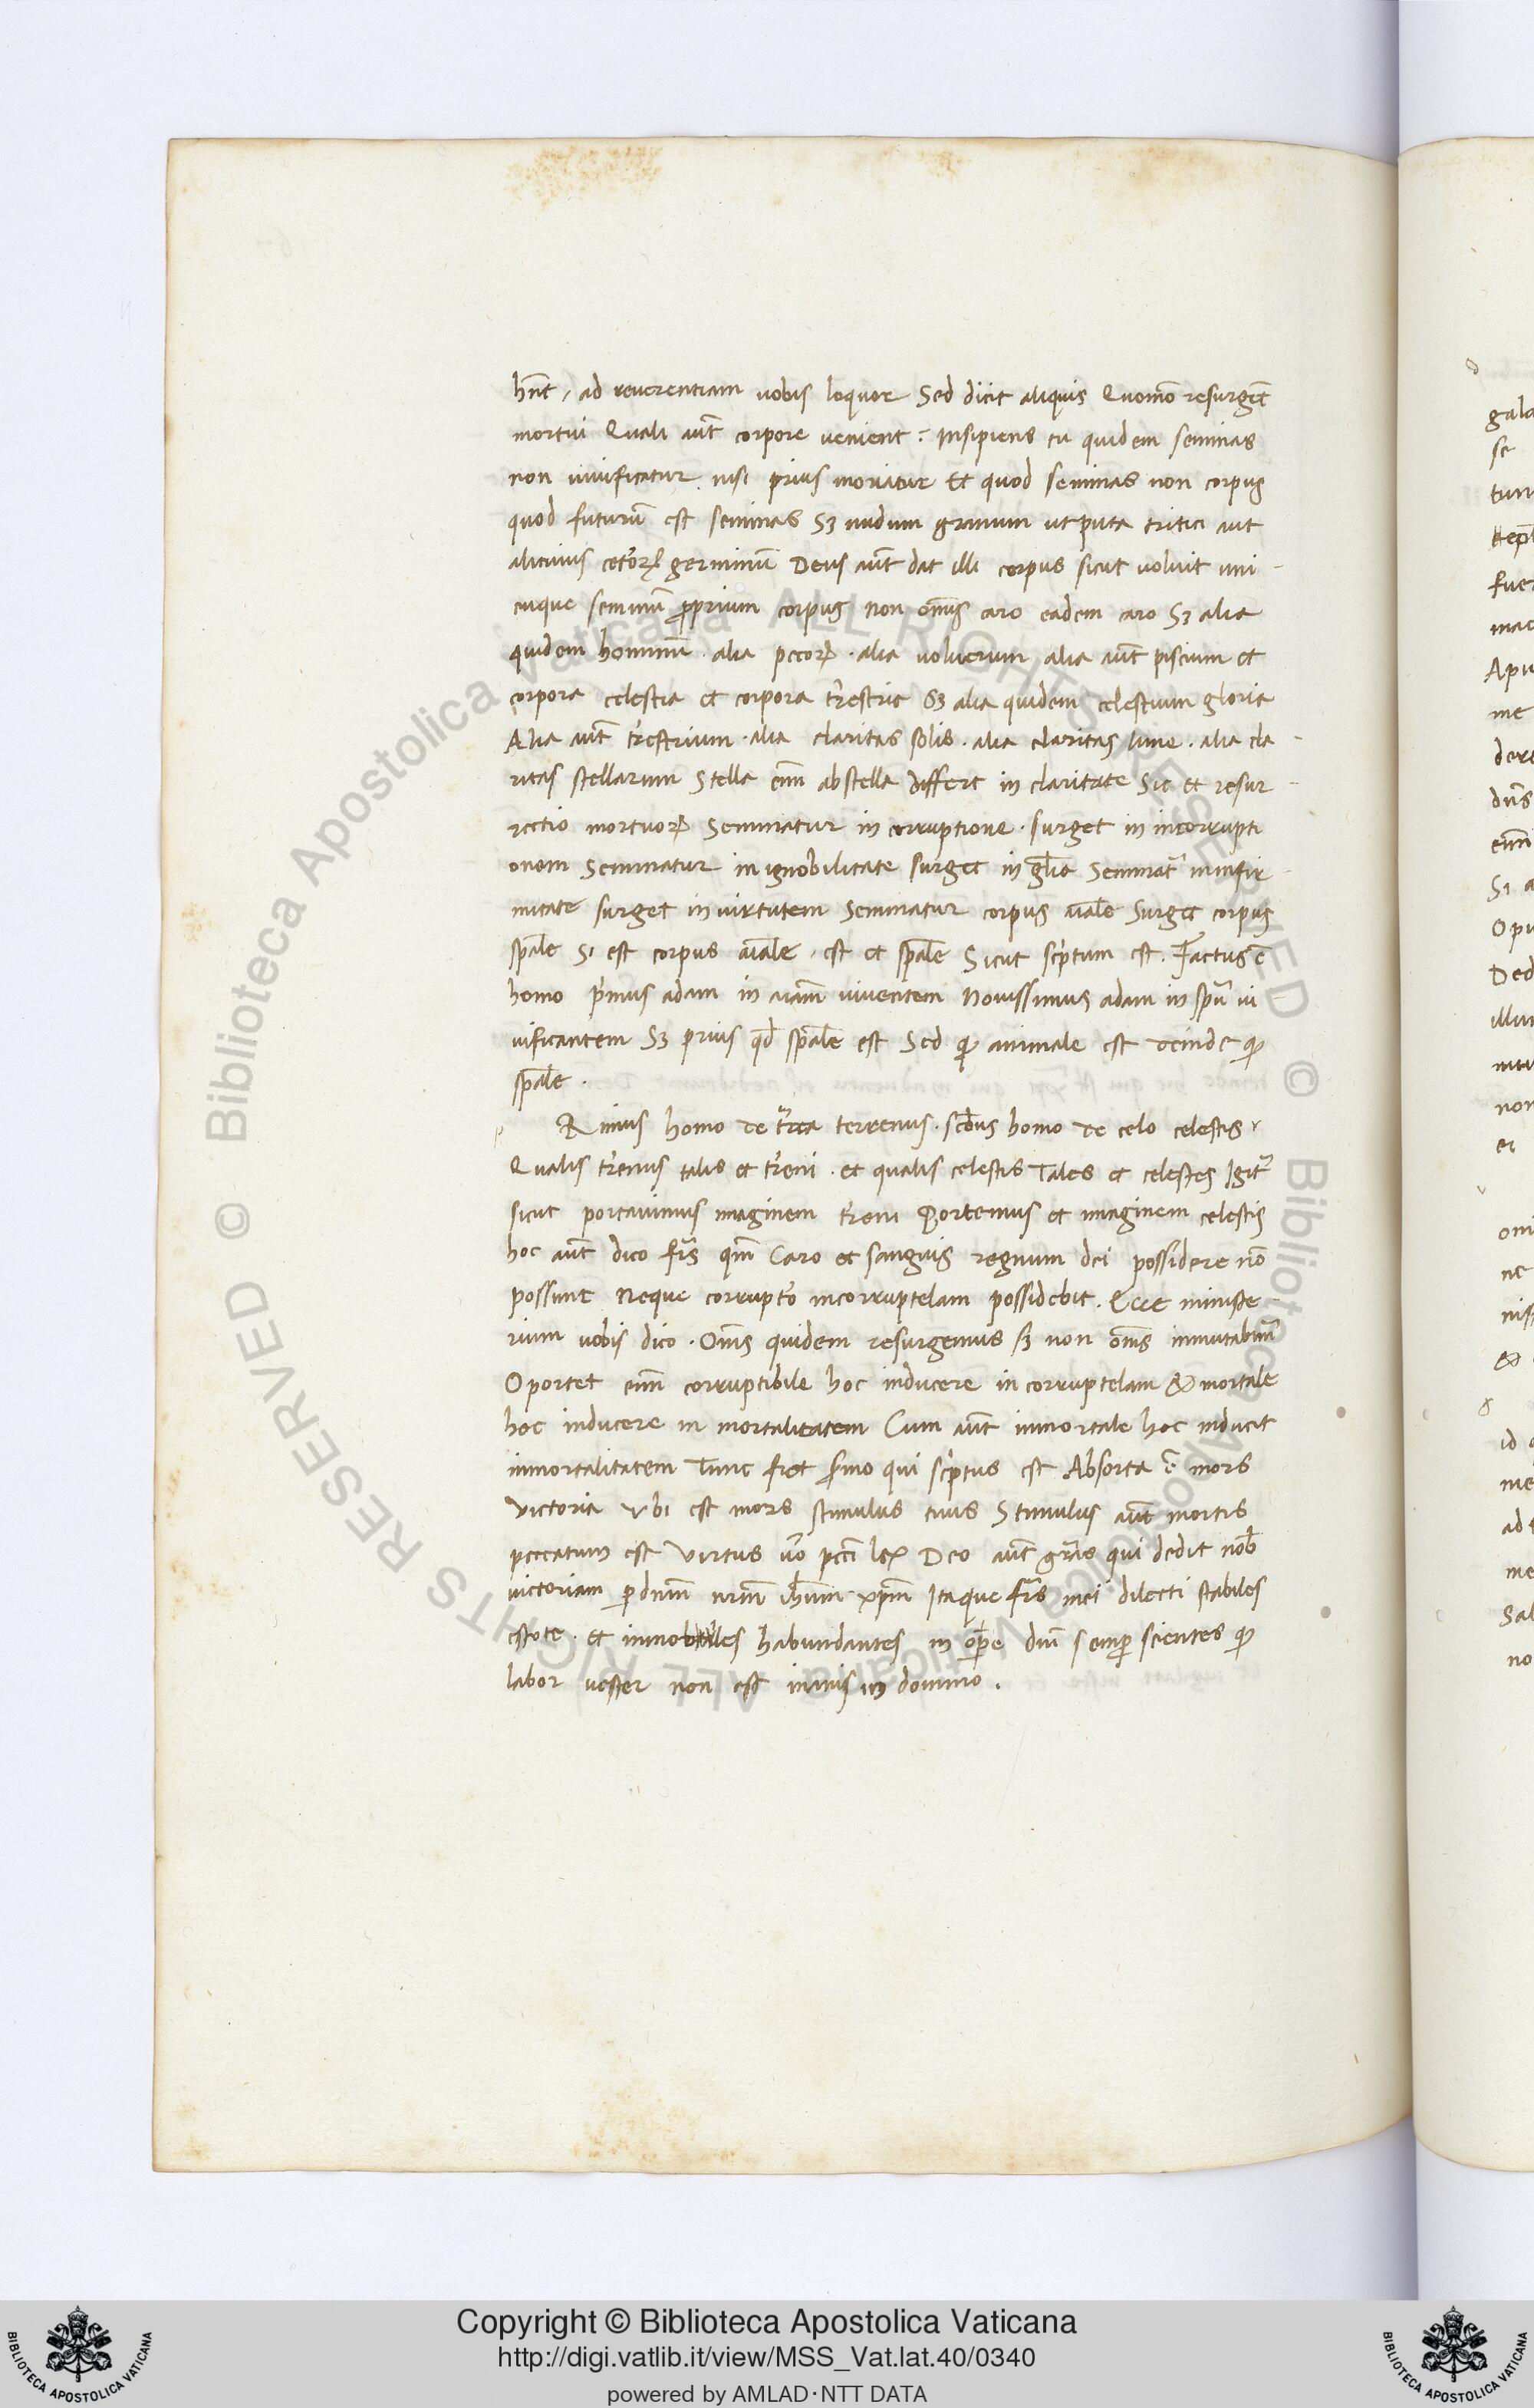 hn̄t, ad reuerentiam uobis loquor Sed dicit aliquis Quomō resurgēt
mortui Quali aūt corpore uenient? Insipiens tu quidem seminas
non uiuificatur nisi prius moriatur Et quod seminas non corpus
quod futurū est seminas Sꝫ nudum granum ut puta tritici aut
alicuius ceto᷑rꝝ germinū Deus aūt dat illi corpus sicut uoluit uni-
cuique seminū proprium corpus Non om̄is caro eadem caro Sꝫ alia
quidem hominū. alia pecorꝝ. alia uolucrum alia aūt piscium et
corpora celestia et corpora tr̄estria Sꝫ alia quidem celestium gloria
Alia aūt tr̄estrium. alia claritas solis. alia claritas lune. alia cla-
ritas stellarum Stella enī ab stella differt in claritate Sic et resur-
rectio mortuorꝝ Seminatur in corruptione. surget in incorrupti
onem Seminatur in ignobilitate surget in gl̄ia Seminat᷑ in infir-
mitate surget in uirtutem Seminatur corpus aīale Surget corpus
sp̄ale Si est corpus aīale. est et sp̄ale Sicut sc̄ptum est. Factus ē
homo p̄mus adam in aīam uiuentem Nouissimus adam in sp̄u ui
uificantem Sꝫ prius qd̄ sp̄ale est Sed ꝙ animale est deinde ꝙ
sp̄ale.
p Rimus homo de tr̄ra terrenus. sc̄dus homo de celo celestis.
Qualis tr̄enus talis et tr̄eni. et qualis celestis Tales et celestes Igit᷑
sicut portauimus imaginem tr̄eni Portemus et imaginem celestis
hoc aūt dico fr̄s qm̄ Caro et sanguis regnum dei possidere nō
possunt Neque corrupto᷑ incorruptelam possidebit. Ecce ministe
rium uobis dico. Om̄s quidem resurgemus sꝫ non om̄s inmutabim̄
Oportet enī corruptibile hoc inducere incorruptelam & mortale
hoc inducere in mortalitatem Cum aūt inmortale hoc inducit
inmortalitatem Tunc fiet s̄mo qui sc̄ptus est Absorta ē mors
victoria Vbi est mors stimulus tuus Stimulus aūt mortis
peccatum est Virtus uō pcc̄i lex Deo aūt gr̄as qui dedit nob̄
uictoriam ꝑ dn̄m nr̄m ih̄um xp̄m Itaque fr̄s mei dilecti stabiles
estote. et inmobiles habundantes in op̄e dn̄i semꝑ scientes ꝙ
labor uester non est inanis in domino.
gala
se
tun
me
Apu
ei
Ded
Sal
no
© Biblioteca Apostolica Vaticana ALL RIGHTS RESERVED © Biblioteca Apostolica Vaticana ALL RIGHTS RESERVED
Copyright © Biblioteca Apostolica Vaticana
http://digi.vatlib.it/view/MSS_Vat.lat.40/0340
powered by AMLAD·NTT DATA
BIBLIOTECA APOSTOLICA VATICANA
BIBLIOTECA APOSTOLICA VATICANA